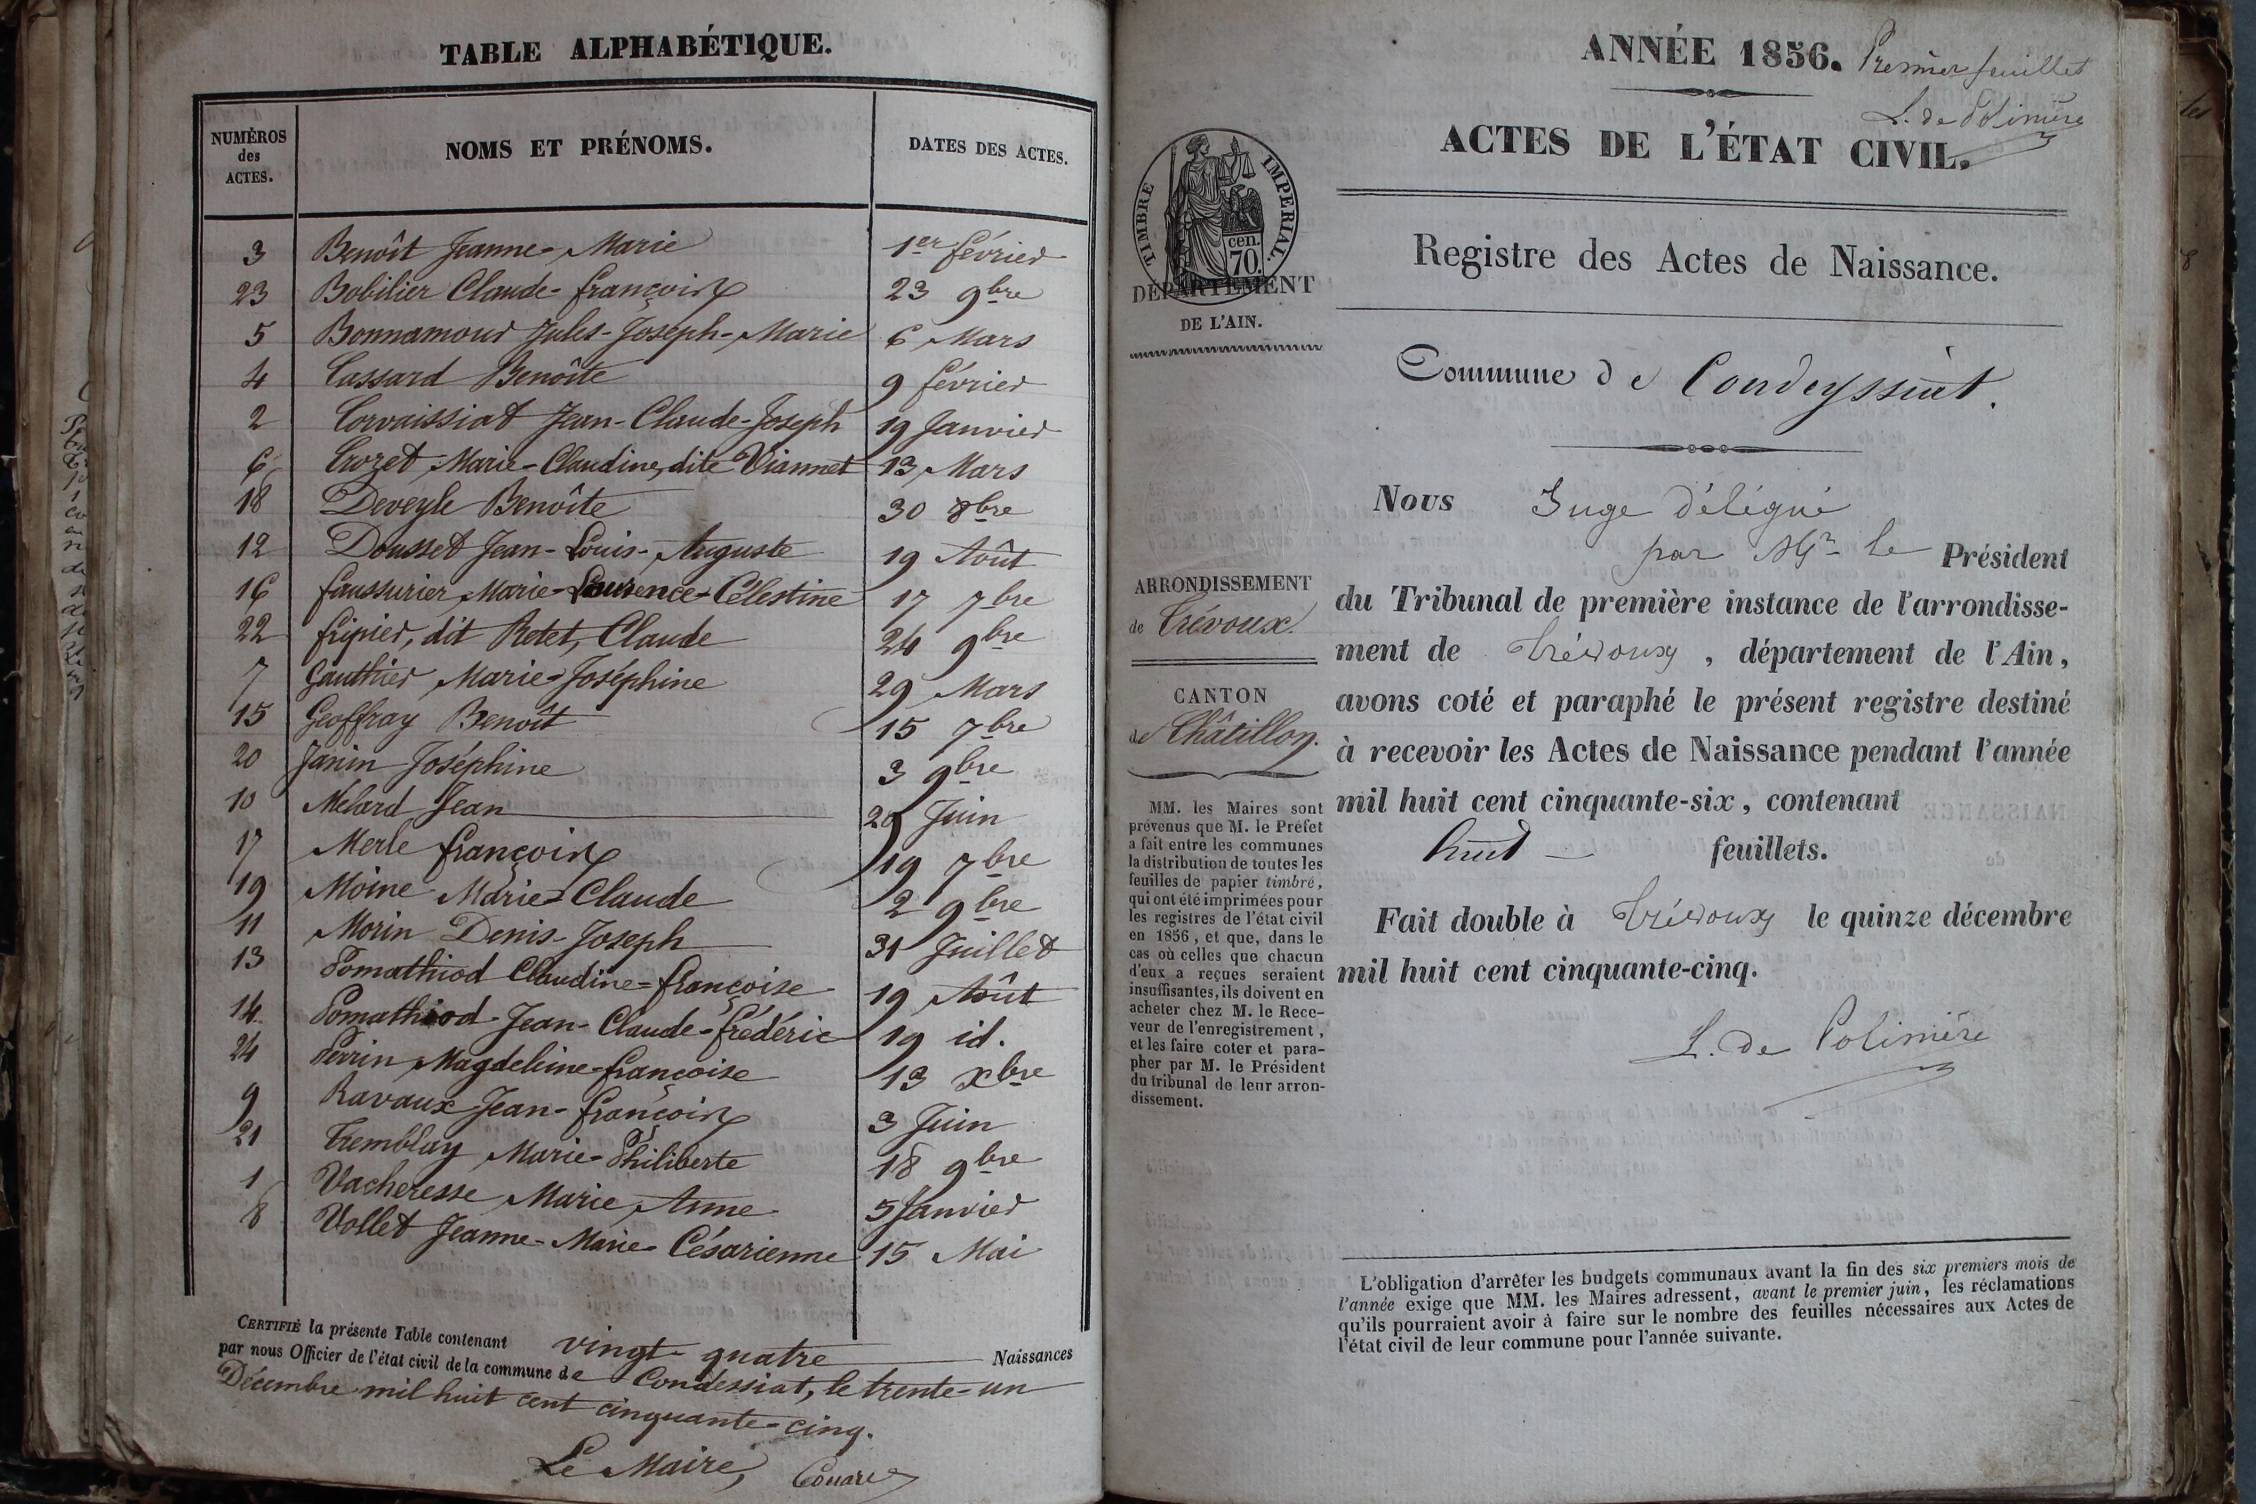 TABLE ALPHABÉTIQUE.
NUMÉROS des ACTES. NOMS ET PRÉNOMS. DATES DES ACTES.
3 Benoît Jeanne-Marie 1er février
23 Bobilier Claude-françois 23 9bre
5 Bonnamour Jules-Joseph-Marie 6 Mars
4 Cassard Benoîte 9 février
2 Corvaissiat Jean-Claude-Joseph 19 Janvier
6 Crozet Marie-Claudine, dite Viannet 13 Mars
18 Deveyle Benoîte 30 8bre
12 Dousset Jean-Louis-Auguste 19 Août
16 faussurier Marie-Laurence-Célestine 17 7bre
22 fripier, dit Retet, Claude 24 9bre
7 Gauthier Marie-Joséphine 29 Mars
15 Geoffray Benoît 15 7bre
20 Janin Joséphine 3 9bre
10 Mélard Jean 20 Juin
17 Merle françois 19 7bre
19 Moine Marie-Claude 2 9bre
11 Morin Denis-Joseph 31 Juillet
13 Pomathiod Claudine=françoise 19 Août
14 Pomathiod Jean-Claude-frédéric 19 id.
24 Perrin Magdeleine-françoise 13 xbre
9 Ravaux Jean-françois 3 Juin
21 Tremblay Marie-Philiberte 18 9bre
1 Vacheresse Marie Anne 5 Janvier
8 Vollet Jeanne-Marie-Césarienne 15 Mai
CERTIFIÉ la présente Table contenant vingt-quatre Naissances
par nous Officier de l'état civil de la commune de Condessiat, le trente-un
Décembre mil huit cent cinquante-cinq.
Le Maire,
ANNÉE 1856. Premier feuillet
L. de Polinière
ACTES DE L'ÉTAT CIVIL.
TIMBRE IMPERIAL.
cen.
70.
Registre des Actes de Naissance.
DÉPARTEMENT
DE L'AIN.
Commune de Condeyssiat.
Nous Juge Délégué
par Mr le Président
du Tribunal de première instance de l'arrondisse-
ment de Trévoux, département de l'Ain,
avons coté et paraphé le présent registre destiné
à recevoir les Actes de Naissance pendant l'année
mil huit cent cinquante-six, contenant
huit feuillets.
Fait double à Trévoux le quinze décembre
mil huit cent cinquante-cinq.
L. de Polinière
ARRONDISSEMENT
de Trévoux.
CANTON
de Châtillon.
MM. les Maires sont
prévenus que M. le Préfet
a fait entre les communes
la distribution de toutes les
feuilles de papier timbré,
qui ont été imprimées pour
les registres de l'état civil
en 1856, et que, dans le
cas où celles que chacun
d'eux a reçues seraient
insuffisantes, ils doivent en
acheter chez M. le Rece-
veur de l'enregistrement,
et les faire coter et para-
pher par M. le Président
du tribunal de leur arron-
dissement.
L'obligation d'arrêter les budgets communaux avant la fin des six premiers mois de
l'année exige que MM. les Maires adressent, avant le premier juin, les réclamations
qu'ils pourraient avoir à faire sur le nombre des feuilles nécessaires aux Actes de
l'état civil de leur commune pour l'année suivante.